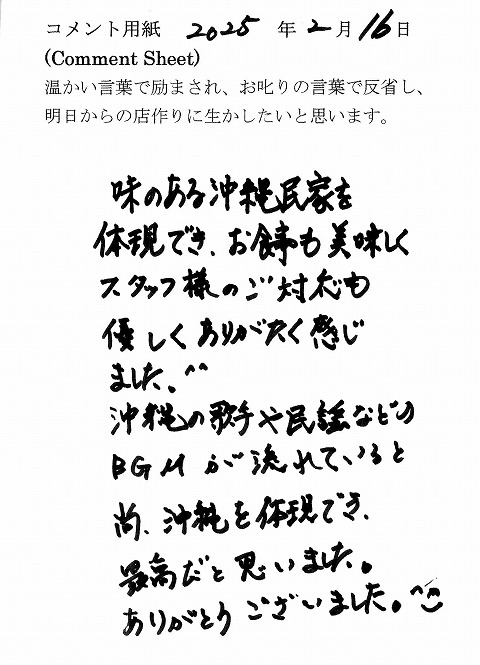 コメント用紙 2025 年 2 月 16 日
(Comment Sheet)
温かい言葉で励まされ、お叱りの言葉で反省し、
明日からの店作りに生かしたいと思います。
味のある沖縄民家を
体現でき、お食事も美味しく
スタッフ様のご対応も
優しくありがたく感じ
ました。^^
沖縄の歌手や民謡などの
BGMが流れていると
尚、沖縄を体現でき、
最高だと思いました。
ありがとうございました。^^